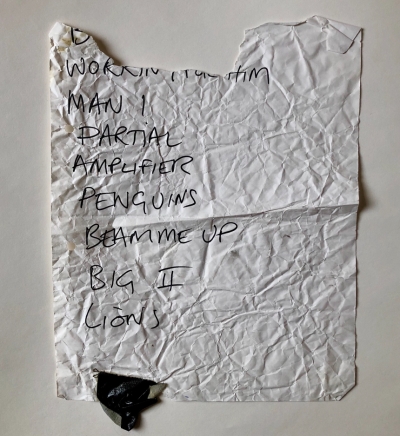 WORKIN HIM
MAN !
PARTIAL
AMPLIFIER
PENGUINS
BEAM ME UP
BIG II
LIONS